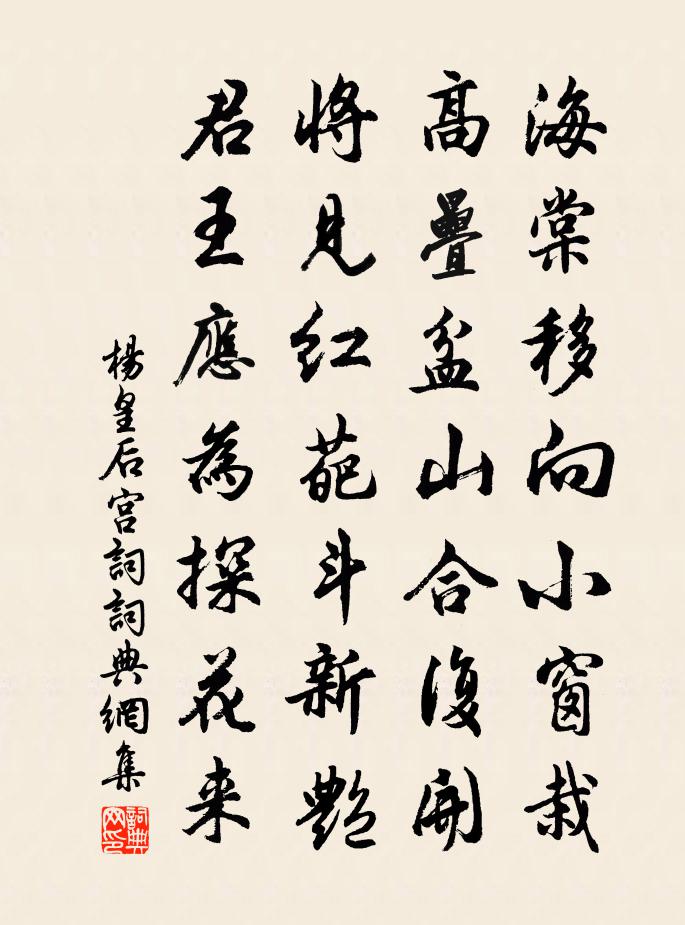 海棠移向小窗栽
高疊盆山合復開
將見紅葩斗新艷
君王應為探花来
楊皇后宮詞詞典網集
詞典网印